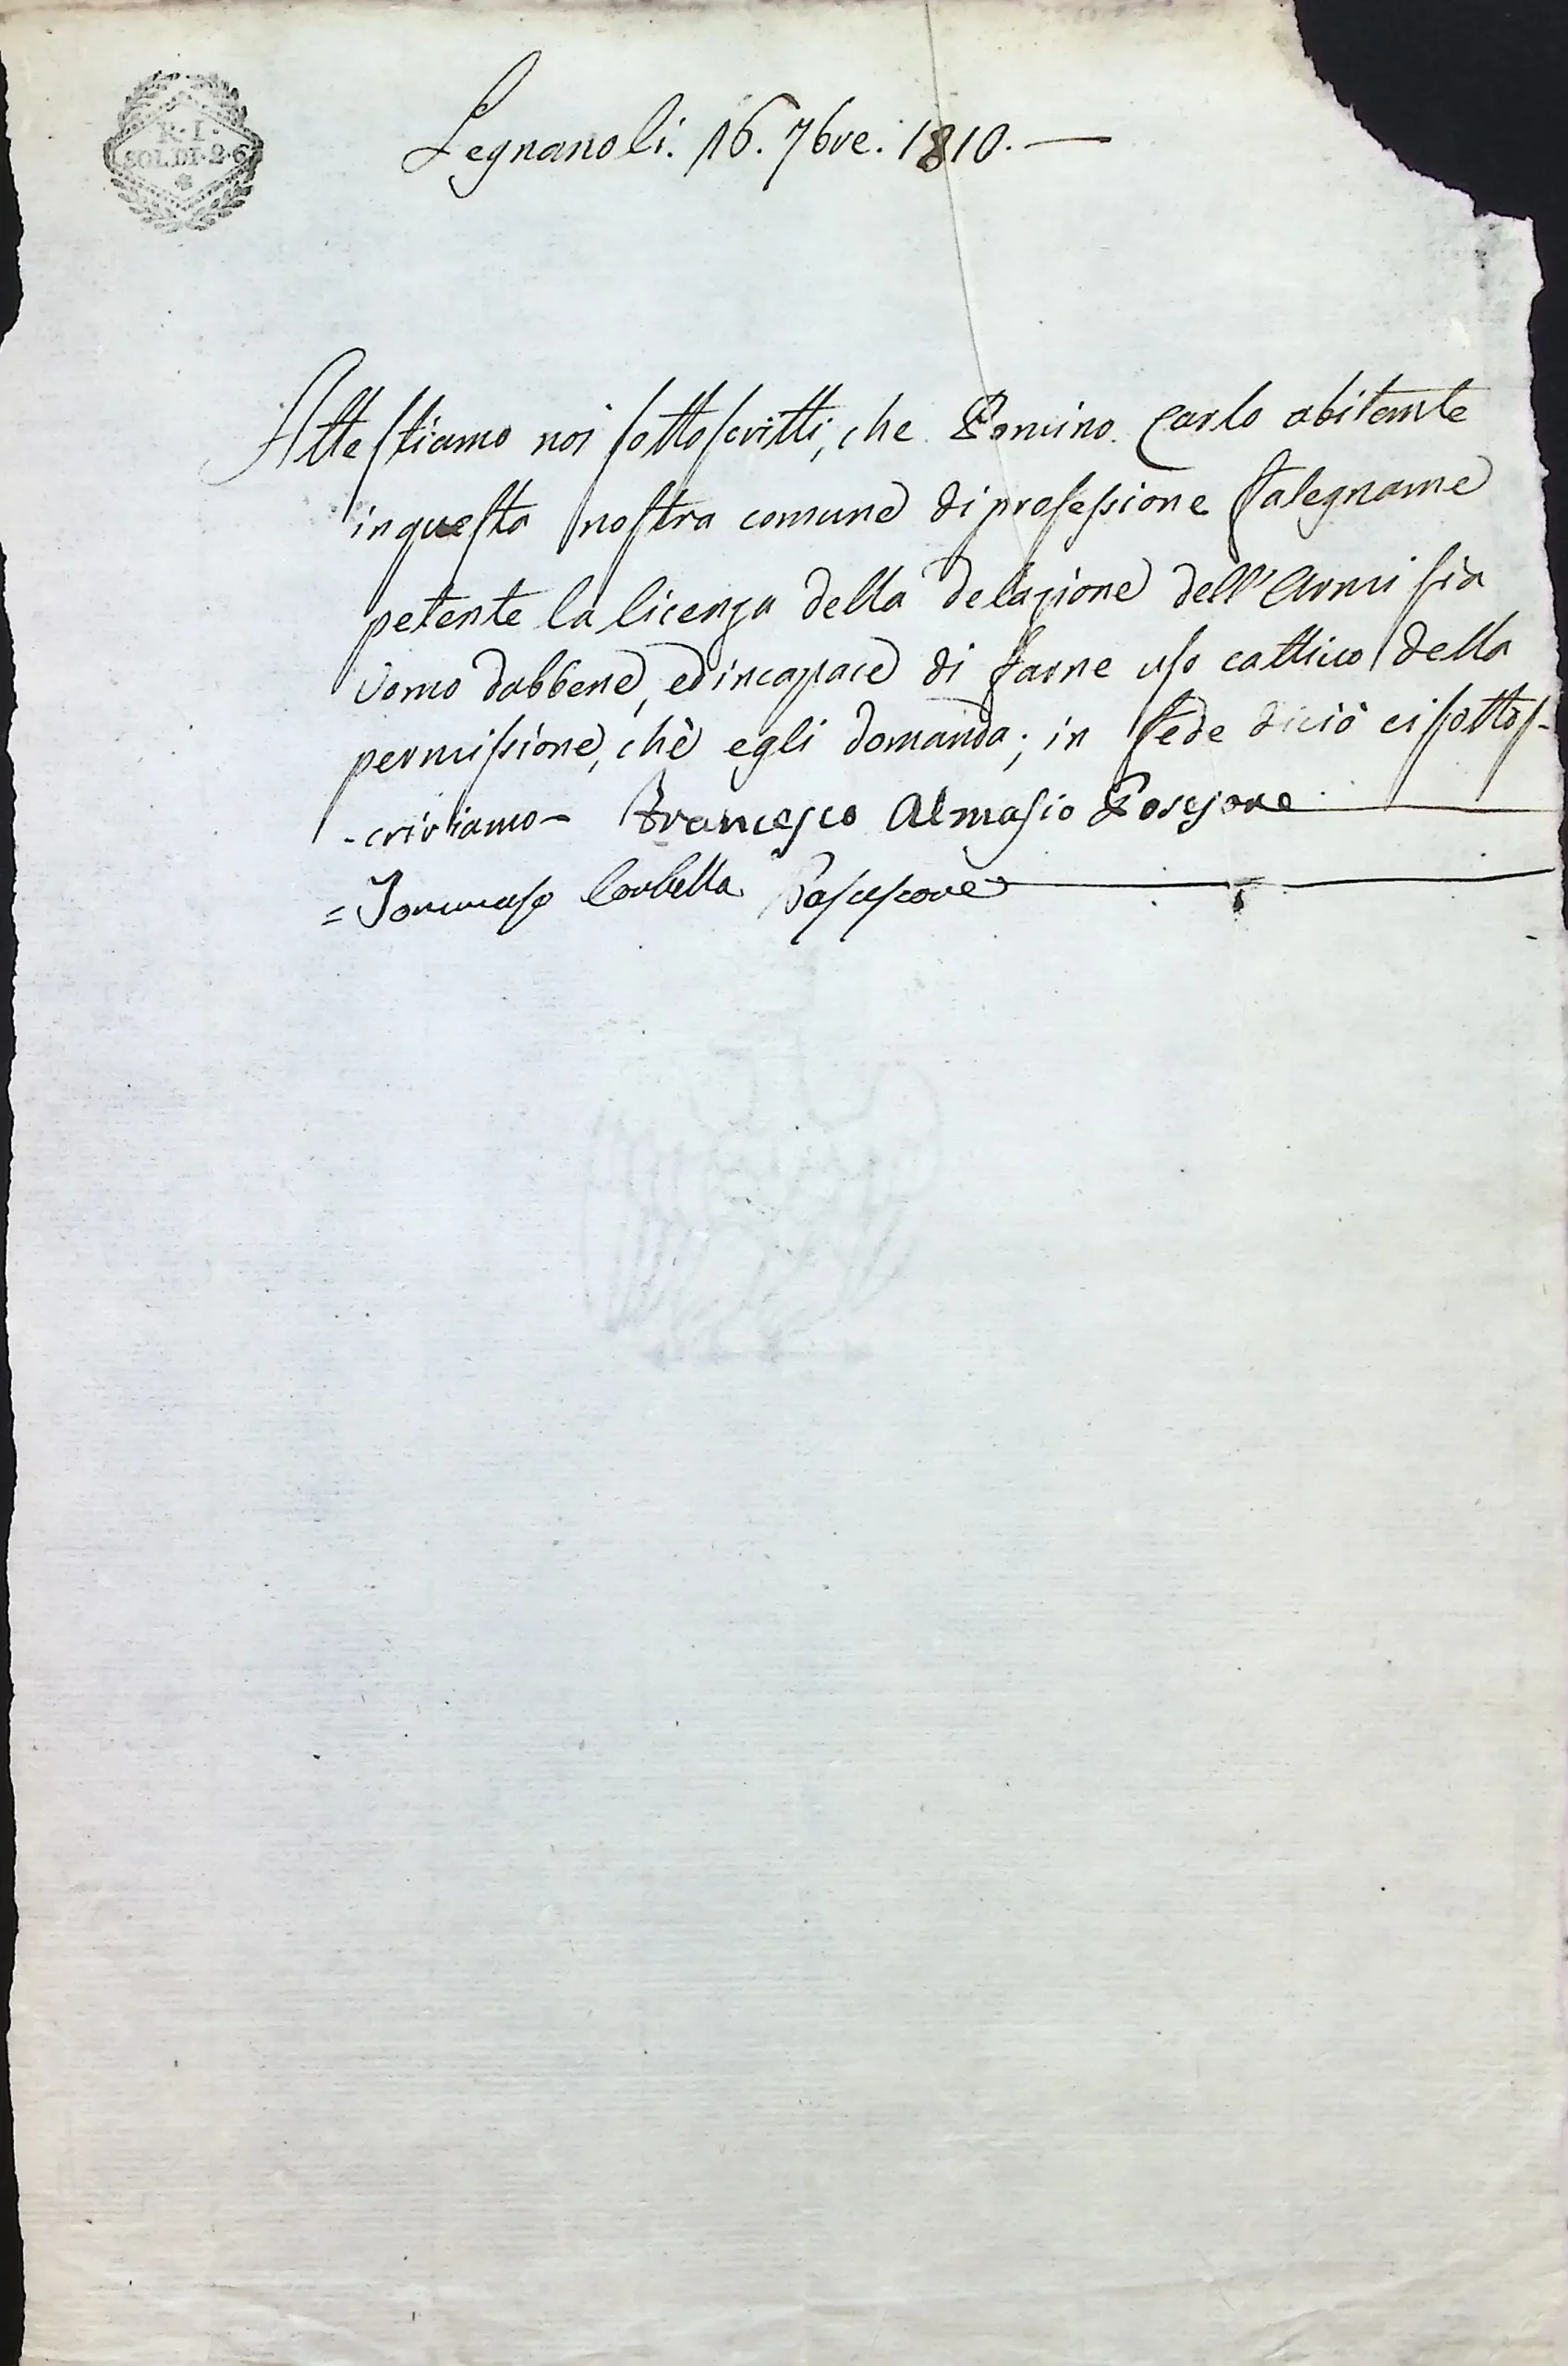 R. I.
SOLDI. 2. 6
Legnano li. 16. 7bre. 1810.
Attestiamo noi sottoscritti, che Pomino. Carlo abitante
in questa nostra comune di professione falegname
petente la licenza della delazione dell'Armi sia
Uomo dabbene, ed incapace di farne uso cattivo della
permissione, chè egli domanda; in fede di ciò ci sottos-
-criviamo- Francesco Almasio
= Tommaso Corbella